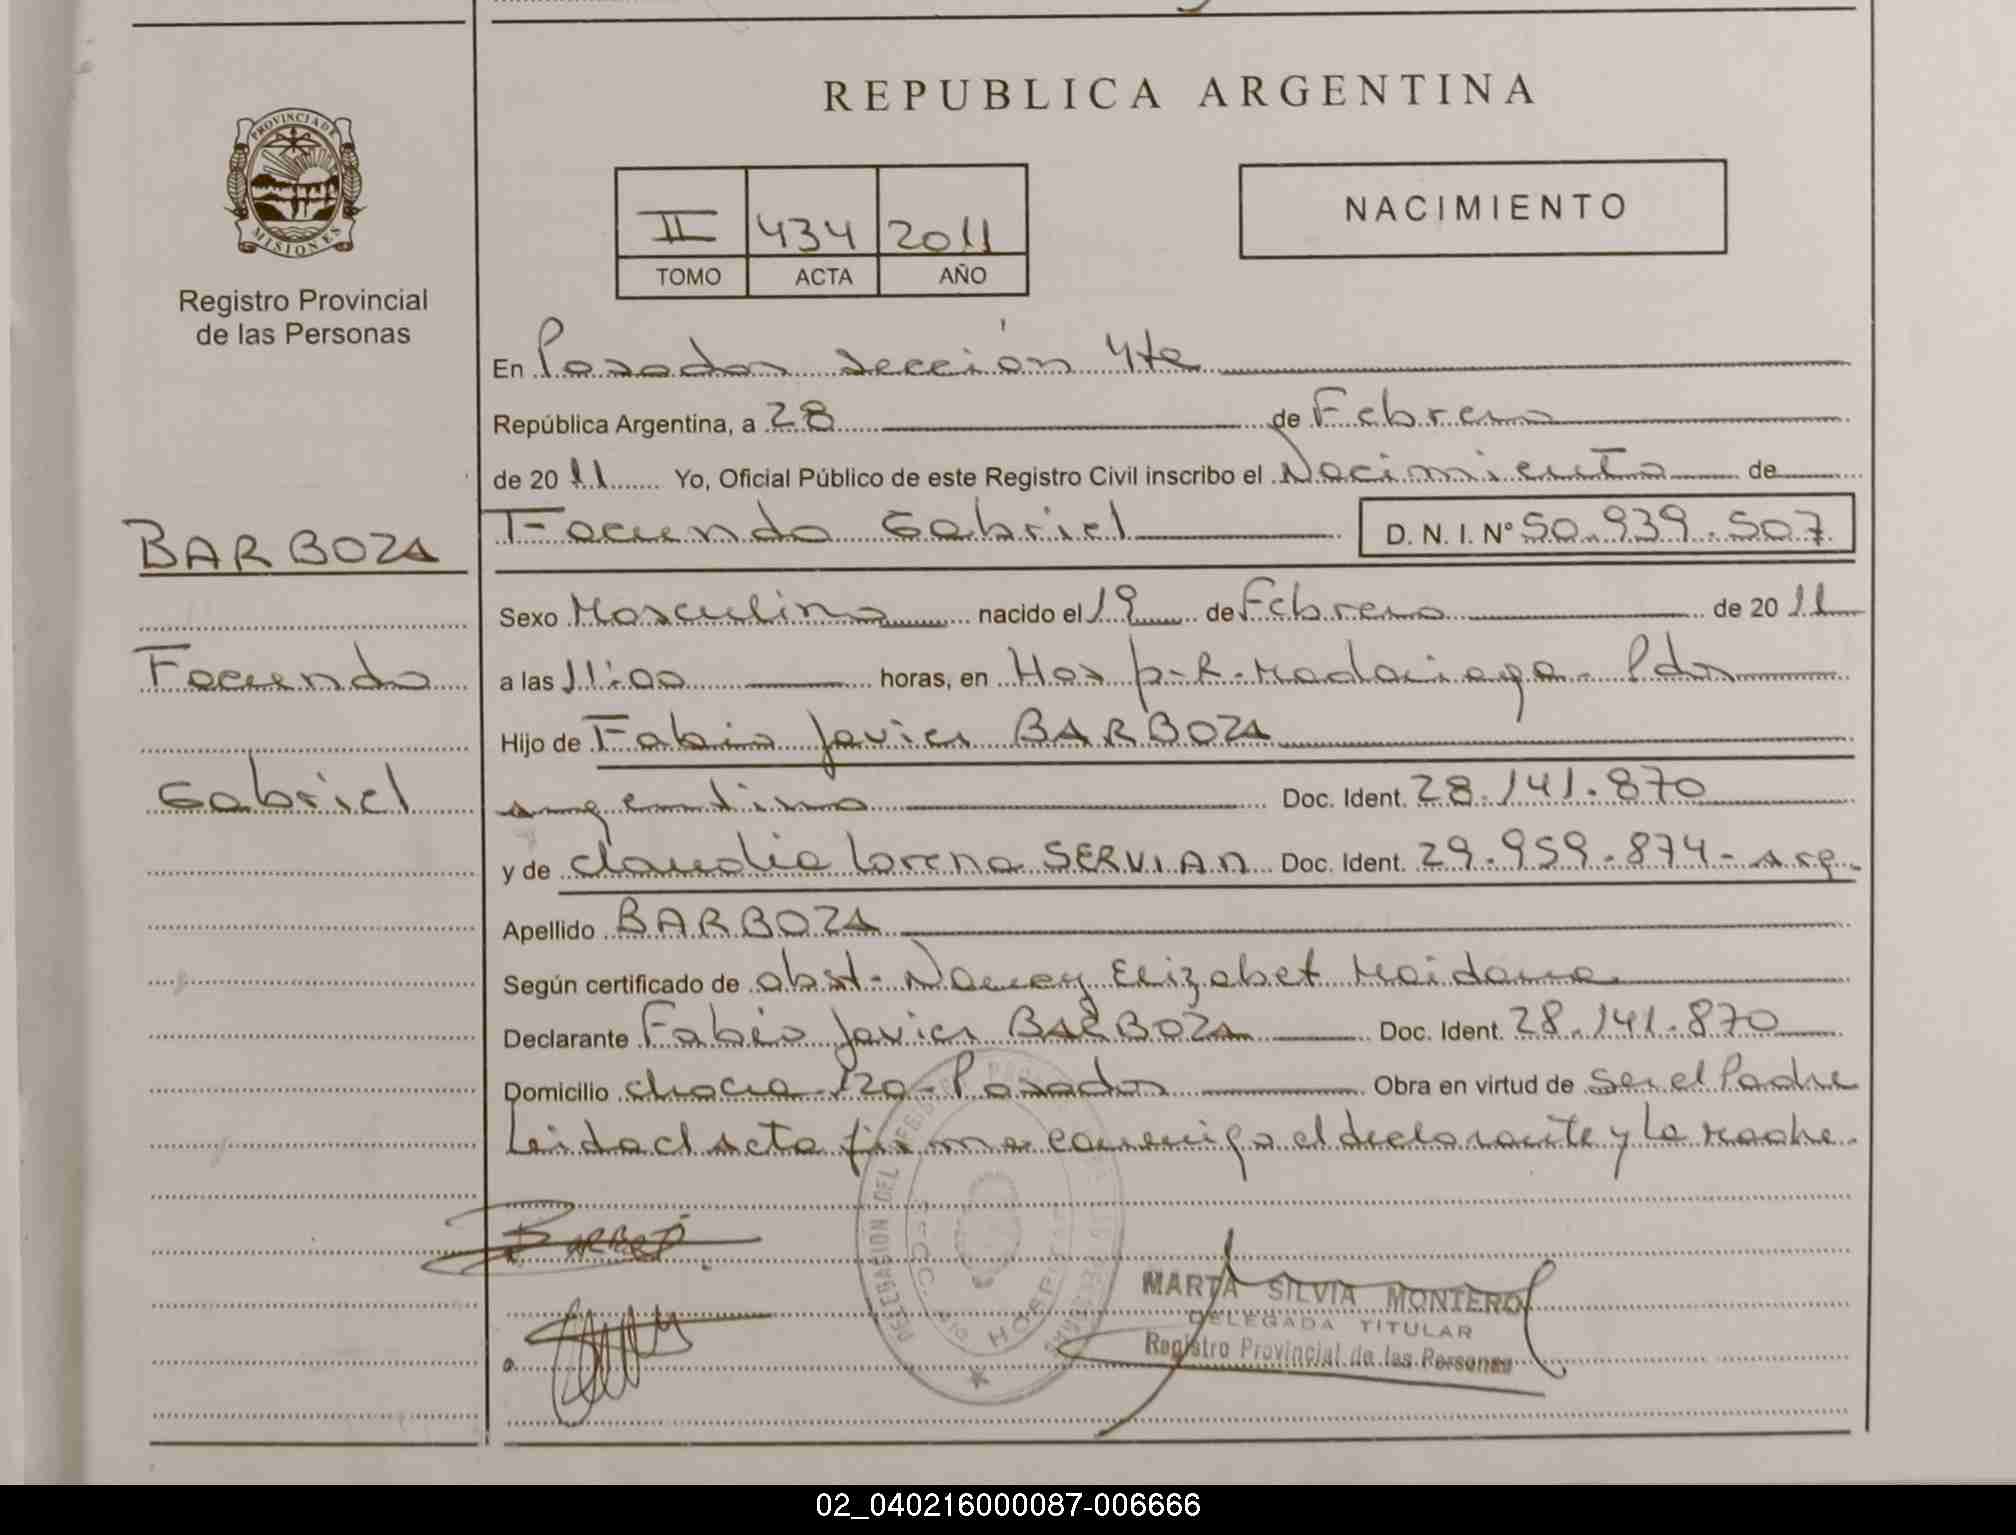 REPUBLICA ARGENTINA
PROVINCIA DE
MISIONES
Registro Provincial
de las Personas
II 434 2011
TOMO ACTA AÑO
NACIMIENTO
En Posadas sección 4ta
República Argentina, a 28 de Febrero
de 2011 Yo, Oficial Público de este Registro Civil inscribo el Nacimiento de
BARBOZA
Facundo
Gabriel
Facundo Gabriel D. N. I. Nº 50.939.507
Sexo Masculino nacido el 19 de Febrero de 2011
a las 11:00 horas, en Hosp-R-Madariaga- Pdas
Hijo de Fabio Javier BARBOZA
argentino Doc. Ident. 28.141.870
y de Claudia Lorena SERVIAN Doc. Ident. 29.959.874- arg.
Apellido BARBOZA
Según certificado de obst- Nancy Elizabet Maidana
Declarante Fabio Javier BARBOZA Doc. Ident. 28.141.870
Domicilio chacra 120- Posadas Obra en virtud de Ser el Padre
Leida el Acta firma conmigo el declarante y la Madre.
DELEGACION DEL REGISTRO
MARTA SILVIA MONTERO
DELEGADA TITULAR
Registro Provincial de las Personas
02_040216000087-006666